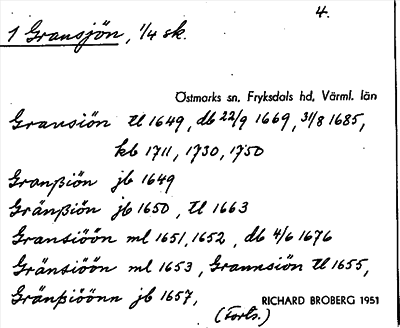 4.
1 Gransjön, 1/4 sk.
Östmarks sn, Fryksdals hd, Värml. län
Gransiön tl 1649, db 22/9 1669, 31/8 1685,
kb 1711, 1730, 1750
Granßiön jb 1649
Gränßiön jb 1650, tl 1663
Gransiöön ml 1651, 1652, db 4/6 1676
Gränsiöön ml 1653, Grannsiön tl 1655,
Gränßiöönn jb 1657,
RICHARD BROBERG 1951
(Forts.)